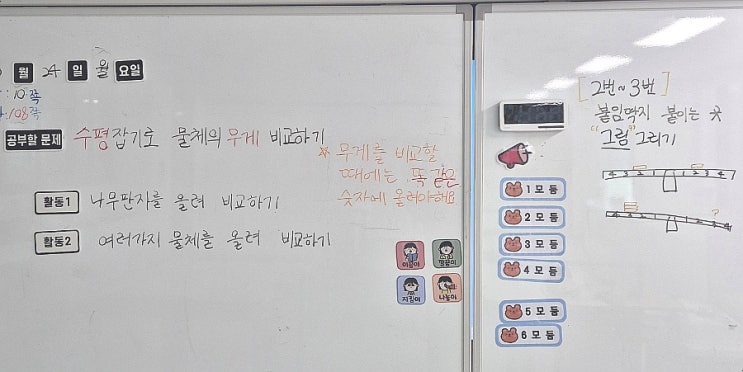 월 24 일 월 요일
:10쪽
108쪽
공부할 문제 수평잡기로 물체의 무게 비교하기
* 무게를 비교할
때에는 똑같은
숫자에 올려야해요
활동1 나무판자를 올려 비교하기
활동2 여러가지 물체를 올려 비교하기
이끔이
지킴이
나눔이
[2번~3번]
붙임딱지 붙이는 곳
"그림" 그리기
1모둠
2모둠
3모둠
4모둠
5모둠
6모둠
4 3 2 1 1 2 3 4
?